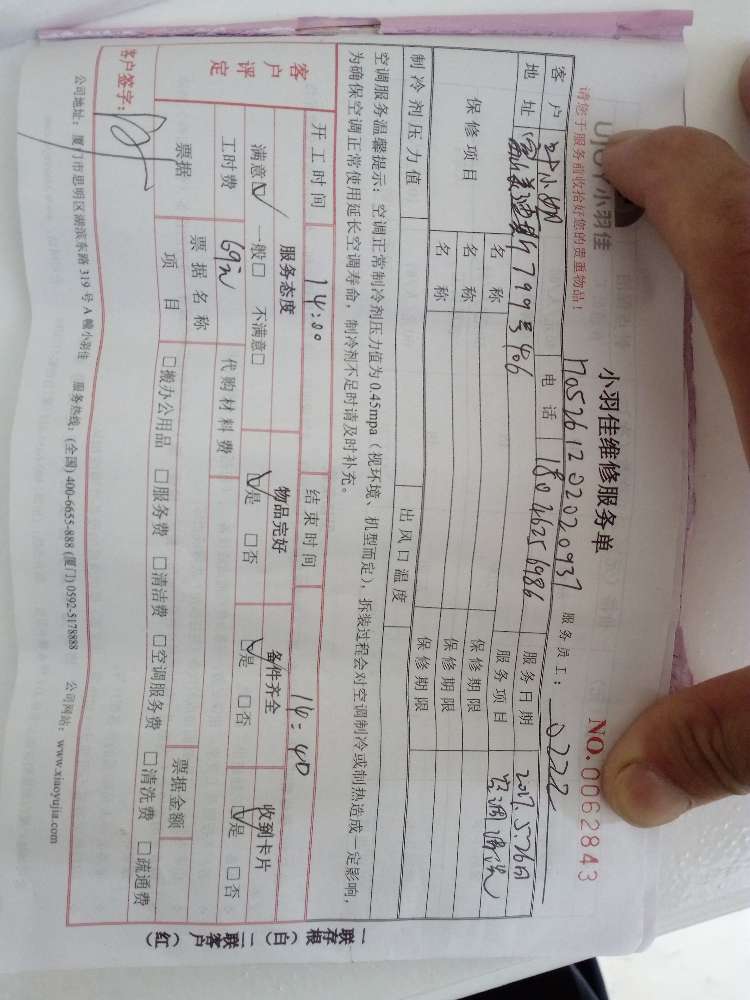 小羽佳
小羽佳维修服务单 NO.0062843
请您于服务前收拾好您的贵重物品! 170526120202093 服务员工: 0222
客户 小姐 电话 18046256986 服务日期 2017.5.26日
地址 799号406 服务项目 空调清洗
保修项目 名称 保修期限
名称 保修期限
名称 保修期限
制冷剂压力值 出风口温度
空调服务温馨提示: 空调正常制冷剂压力值为0.45mpa(视环境、机型而定),拆装过程会对空调制冷或制热造成一定影响,
为确保空调正常使用延长空调寿命,制冷剂不足时请及时补充。
开工时间 14:00 结束时间 14:40
客户评定 服务态度 物品完好 备件齐全 收到卡片
满意☑ 一般□ 不满意□ ☑是 □否 ☑是 □否 ☑是 □否
工时费 69元 代购材料费
票据 票据名称 票据金额
项目 □搬办公用品 □服务费 □清洁费 □空调服务费 □清洗费 □疏通费
客户签字:
公司地址: 厦门市思明区湖滨东路319号A幢小羽佳 服务热线: (全国) 400-6655-888 (厦门) 0592-5178888 公司网站: www.xiaoyujia.com
一联存根(白) 二联客户(红)